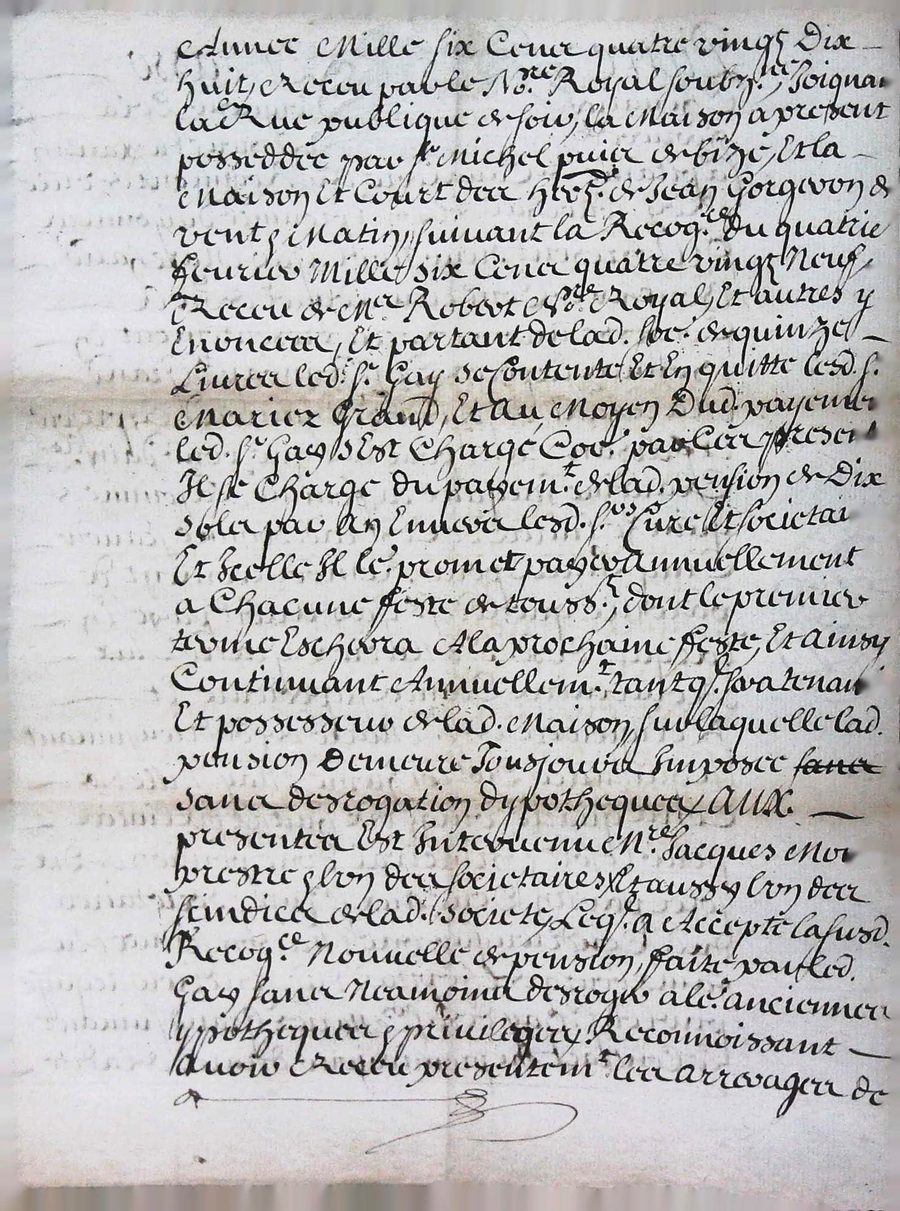 Annee Mille six Cens quatre vingt Dix
huit, Receu par le No.re Royal soubz.né Joignan
la Rue publique de soir, la Maison a present
posseddée par sr. Michel puis de bize, Et la
Maison Et Court des her.s de Jean Gorgeron de
vent & Matin, suivant la Recog.ce du quatrie
feurier Mille six Cens quatre vingt Neuf,
Receu de M.e Robert No.re Royal, Et autres y
Enoncees, Et partant de lad. so.e de quinze
Liures led. sr. Gay se Contente Et En quitte lesd. s.
Mariez Grand, Et Au Moyen Dud. payeme
led. sr. Gay s'Est Chargé Coe. par les presen
Il se Charge du payem.t de lad. pension de Dix
sols par An Enuers lesd. s.rs Curé Et societai
Et Icelle Il le. promet payer Annuellement
a Chacune feste de touss.ts, dont le premier
terme Eschera A la prochaine feste, Et Ainsy
Continuant Annuellem.t tant q. sera tenan
Et possesseur de lad. Maison, sur laquelle lad.
pension Demeure Tousjours Imposee sans
sans desrogation d'ypotheques, AUX
presentes Est Interuenu M.re Jacques Moi
prestre & l'un des societaires Et aussy l'un des
scindics de lad. societe, Leq. a Accepté la susd.
Recog.ce Nouvelle de pension, faite par led.
Gay sans Neamoins desroger a le. anciennes
ypotheques & privileges, Reconnoissant
Auoir Receu presentem.t les arrerages de